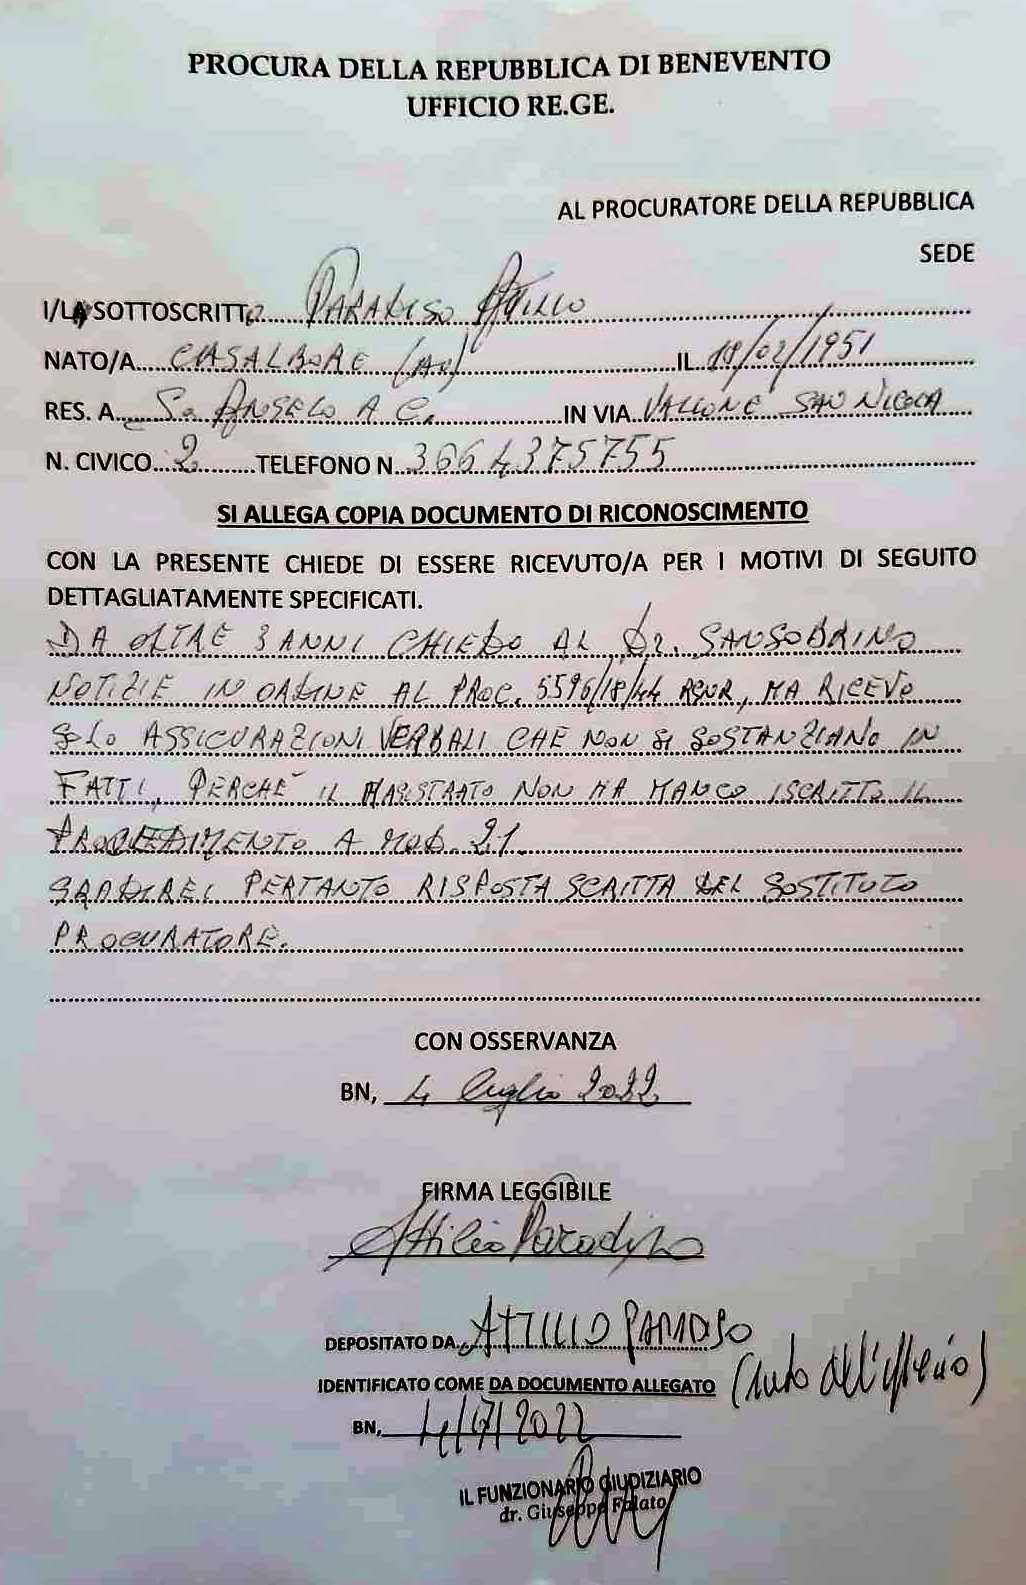 PROCURA DELLA REPUBBLICA DI BENEVENTO
UFFICIO RE.GE.
AL PROCURATORE DELLA REPUBBLICA
SEDE
I/LA SOTTOSCRITTO PARADISO ATTILIO
NATO/A CASALBORE (AV) IL 18/02/1951
RES. A S. ANGELO A C. IN VIA VALLONE SAN NICOLA
N. CIVICO 2 TELEFONO N. 3664375755
SI ALLEGA COPIA DOCUMENTO DI RICONOSCIMENTO
CON LA PRESENTE CHIEDE DI ESSERE RICEVUTO/A PER I MOTIVI DI SEGUITO
DETTAGLIATAMENTE SPECIFICATI.
DA OLTRE 3 ANNI CHIEDO AL DR. SANSOBRINO
NOTIZIE IN ORDINE AL PROC. 5596/18/44 RGNR, MA RICEVO
SOLO ASSICURAZIONI VERBALI CHE NON SI SOSTANZIANO IN
FATTI, PERCHÉ IL MAGISTRATO NON HA MANCO ISCRITTO IL
PROCEDIMENTO A MOD. 21.
GRADIREI PERTANTO RISPOSTA SCRITTA DEL SOSTITUTO
PROCURATORE.
CON OSSERVANZA
BN, 4 luglio 2022
FIRMA LEGGIBILE
Attilio Paradiso
DEPOSITATO DA ATTILIO PARADISO
IDENTIFICATO COME DA DOCUMENTO ALLEGATO (noto dell'ufficio)
BN, 4/7/2022
IL FUNZIONARIO GIUDIZIARIO
dr. Giuseppe